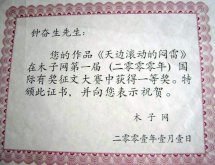 钟奋生先生：
您的作品《天边滚动的闷雷》
在木子网第一届（二零零零年）国
际有奖征文大赛中获得一等奖。特
颁此证书，并向您表示祝贺。
木子网
二零零壹年壹月壹日